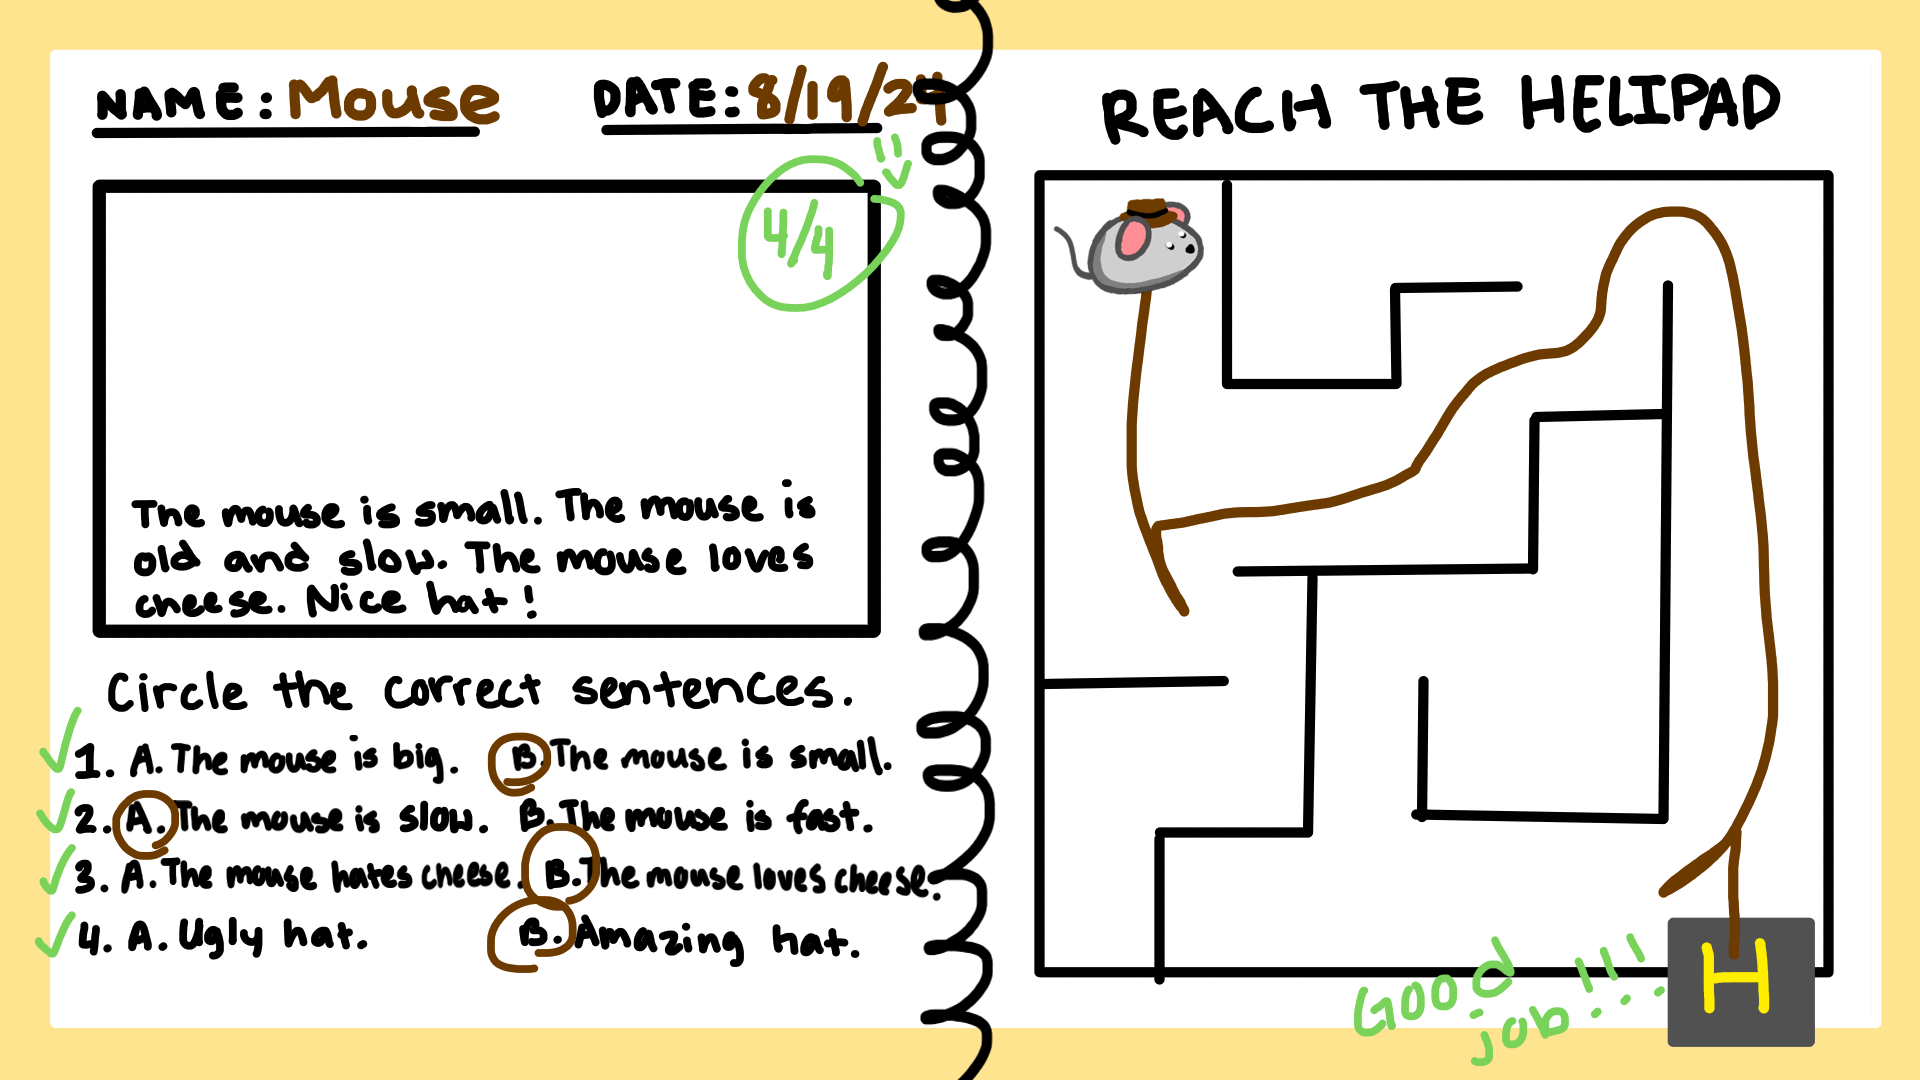 NAME: Mouse DATE: 8/19/24
4/4
The mouse is small. The mouse is
old and slow. The mouse loves
cheese. Nice hat!
Circle the correct sentences.
1. A. The mouse is big. B. The mouse is small.
2. A. The mouse is slow. B. The mouse is fast.
3. A. The mouse hates cheese. B. The mouse loves cheese.
4. A. Ugly hat. B. Amazing hat.
REACH THE HELIPAD
Good
job!!!
H